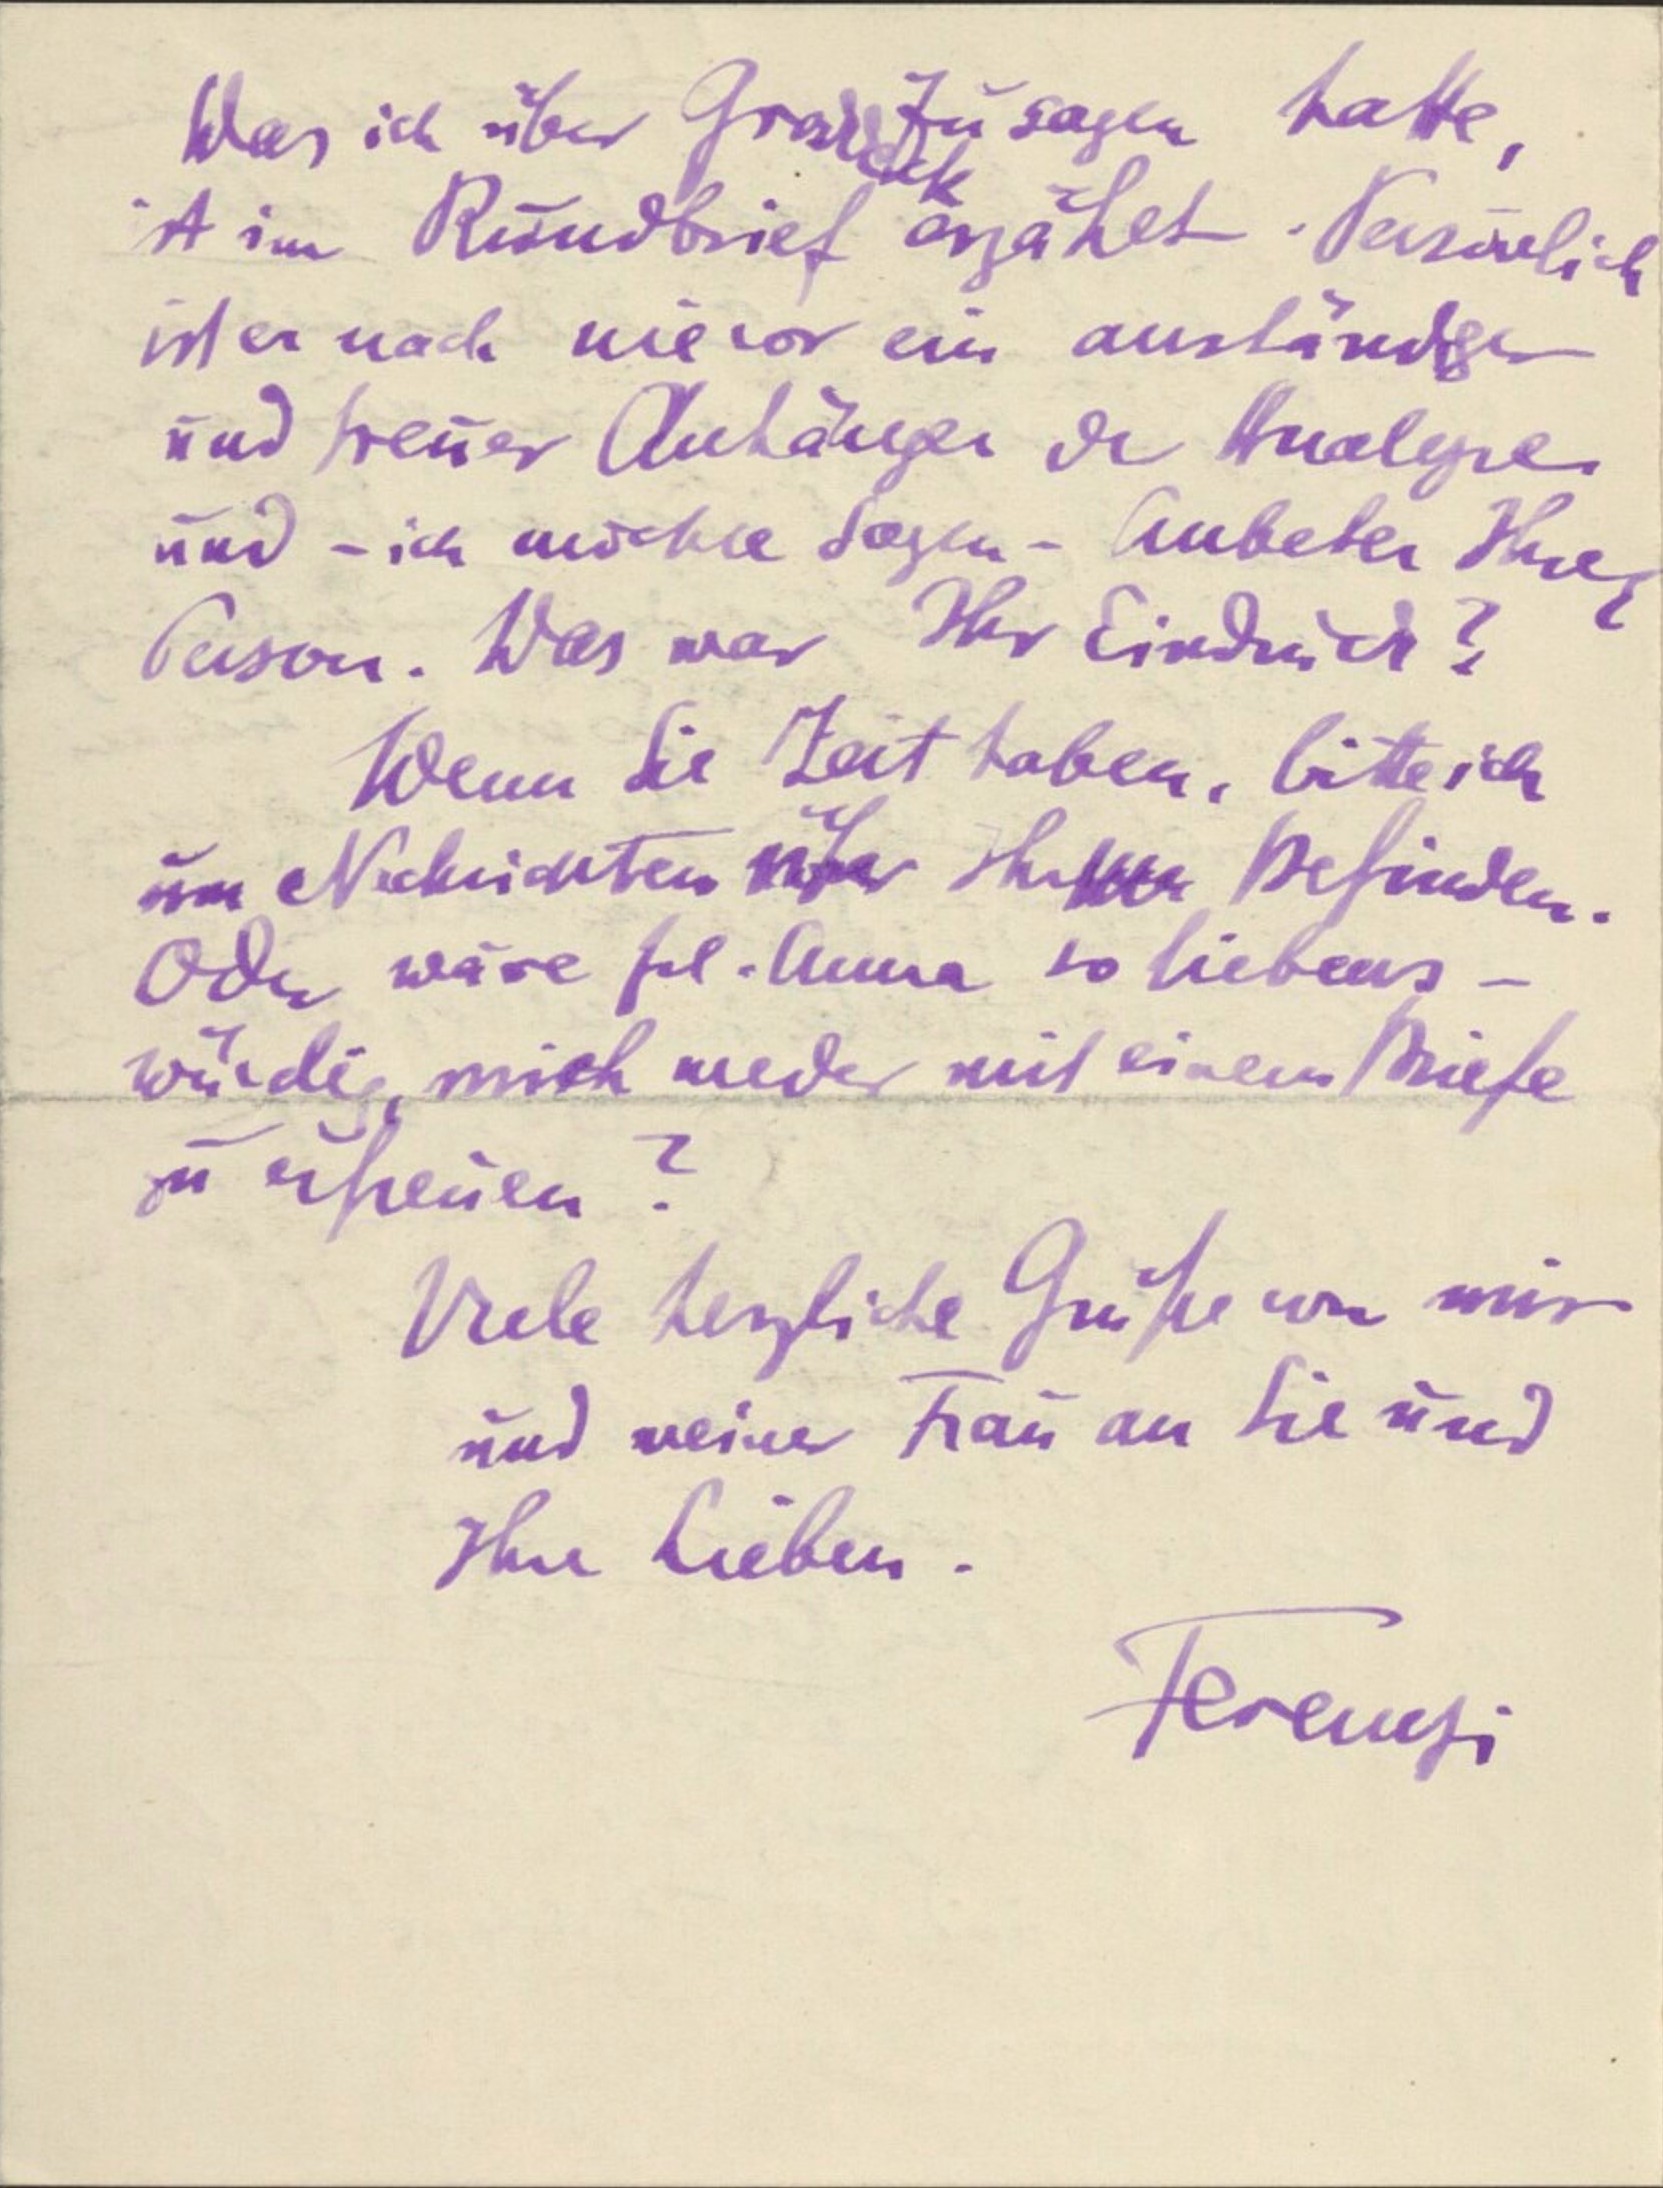 Was ich über Groddeck zu sagen hatte,
ist im Rundbrief erzählt. Persönlich
ist er nach wie vor ein anständiger
und treuer Anhänger der Analyse
und – ich möchte sagen – Anbeter Ihrer
Person. Was war Ihr Eindruck?
Wenn Sie Zeit haben, bitte ich
um Nachrichten über Ihr Befinden.
Oder wäre Frl. Anna so liebens-
würdig, mich wieder mit einem Briefe
zu erfreuen?
Viele herzliche Grüße von mir
und meiner Frau an Sie und
Ihre Lieben.
Ferenczi